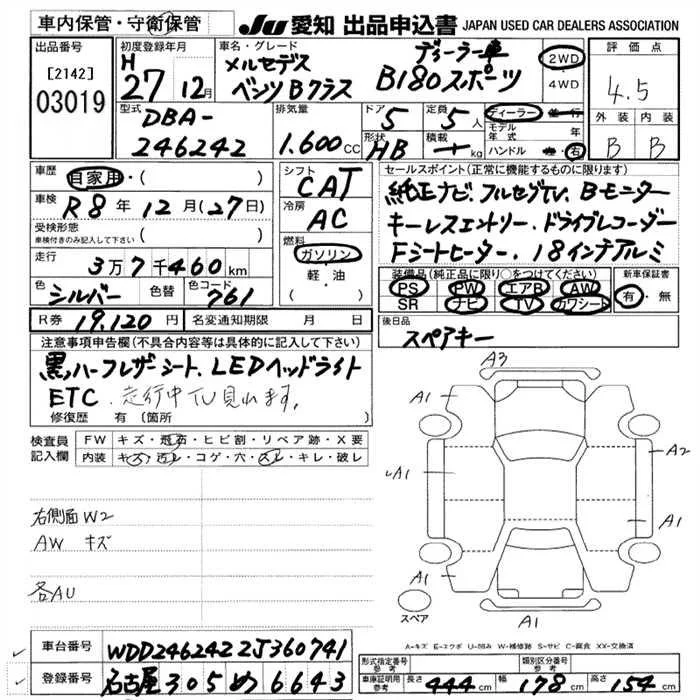 車内保管・守衛保管
JU 愛知 出品申込書 JAPAN USED CAR DEALERS ASSOCIATION
出品番号
[2142]
03019
初度登録年月
H
27年12月
車名・グレード
メルセデス
ベンツBクラス
ディーラー車
B180スポーツ
2WD
・
4WD
評価点
4.5
外装 内装
B B
型式
DBA-
246242
排気量
1.600cc
ドア
5
定員
5人
形状
HB
積載
kg
ディーラー・並行
モデル年式 年
ハンドル 左・右
車歴
自家用・( )
車検 R8年12月(27日)
受検形態
車検付きのみ記入して下さい
( )
走行
3万7千460km
色 シルバー 色替 色コード 761
シフト
CAT
冷房
AC
燃料
ガソリン
・
軽・油
セールスポイント(正常に機能するものに限ります)
純正ナビ.フルセグTV.Bモニター
キーレスエントリー.ドライブレコーダー
Fシートヒーター.18インチアルミ
装備品(純正品に限り○をつけてください)
PS PW エアB AW
SR ナビ TV カワシート
新車保証書
有・無
R券 19.120円 名変通知期限 月 日
後日品
スペアキー
注意事項申告欄(不具合内容等は具体的に記入して下さい)
黒ハーフレザーシート.LEDヘッドライト
ETC.走行中TV見れます.
修復歴 有(箇所 )
検査員
記入欄
FW キズ・飛石・ヒビ割・リペア跡・X要
内装 キズ・汚レ・コゲ・穴・スレ・キレ・破レ
右側面W2
AW キズ
各AU
A3
A1
A1
A2
A1
A1
A1
A1
スペア
A-キズ E-エクボ U-凹み W-補修跡 S-サビ C-腐食 XX-交換済
車台番号 WDD2462422J360741
登録番号 名古屋305め6643
形式指定番号
参考
類別区分番号
参考
車庫証明用
参考
長さ 444cm 幅 178cm 高さ 154cm